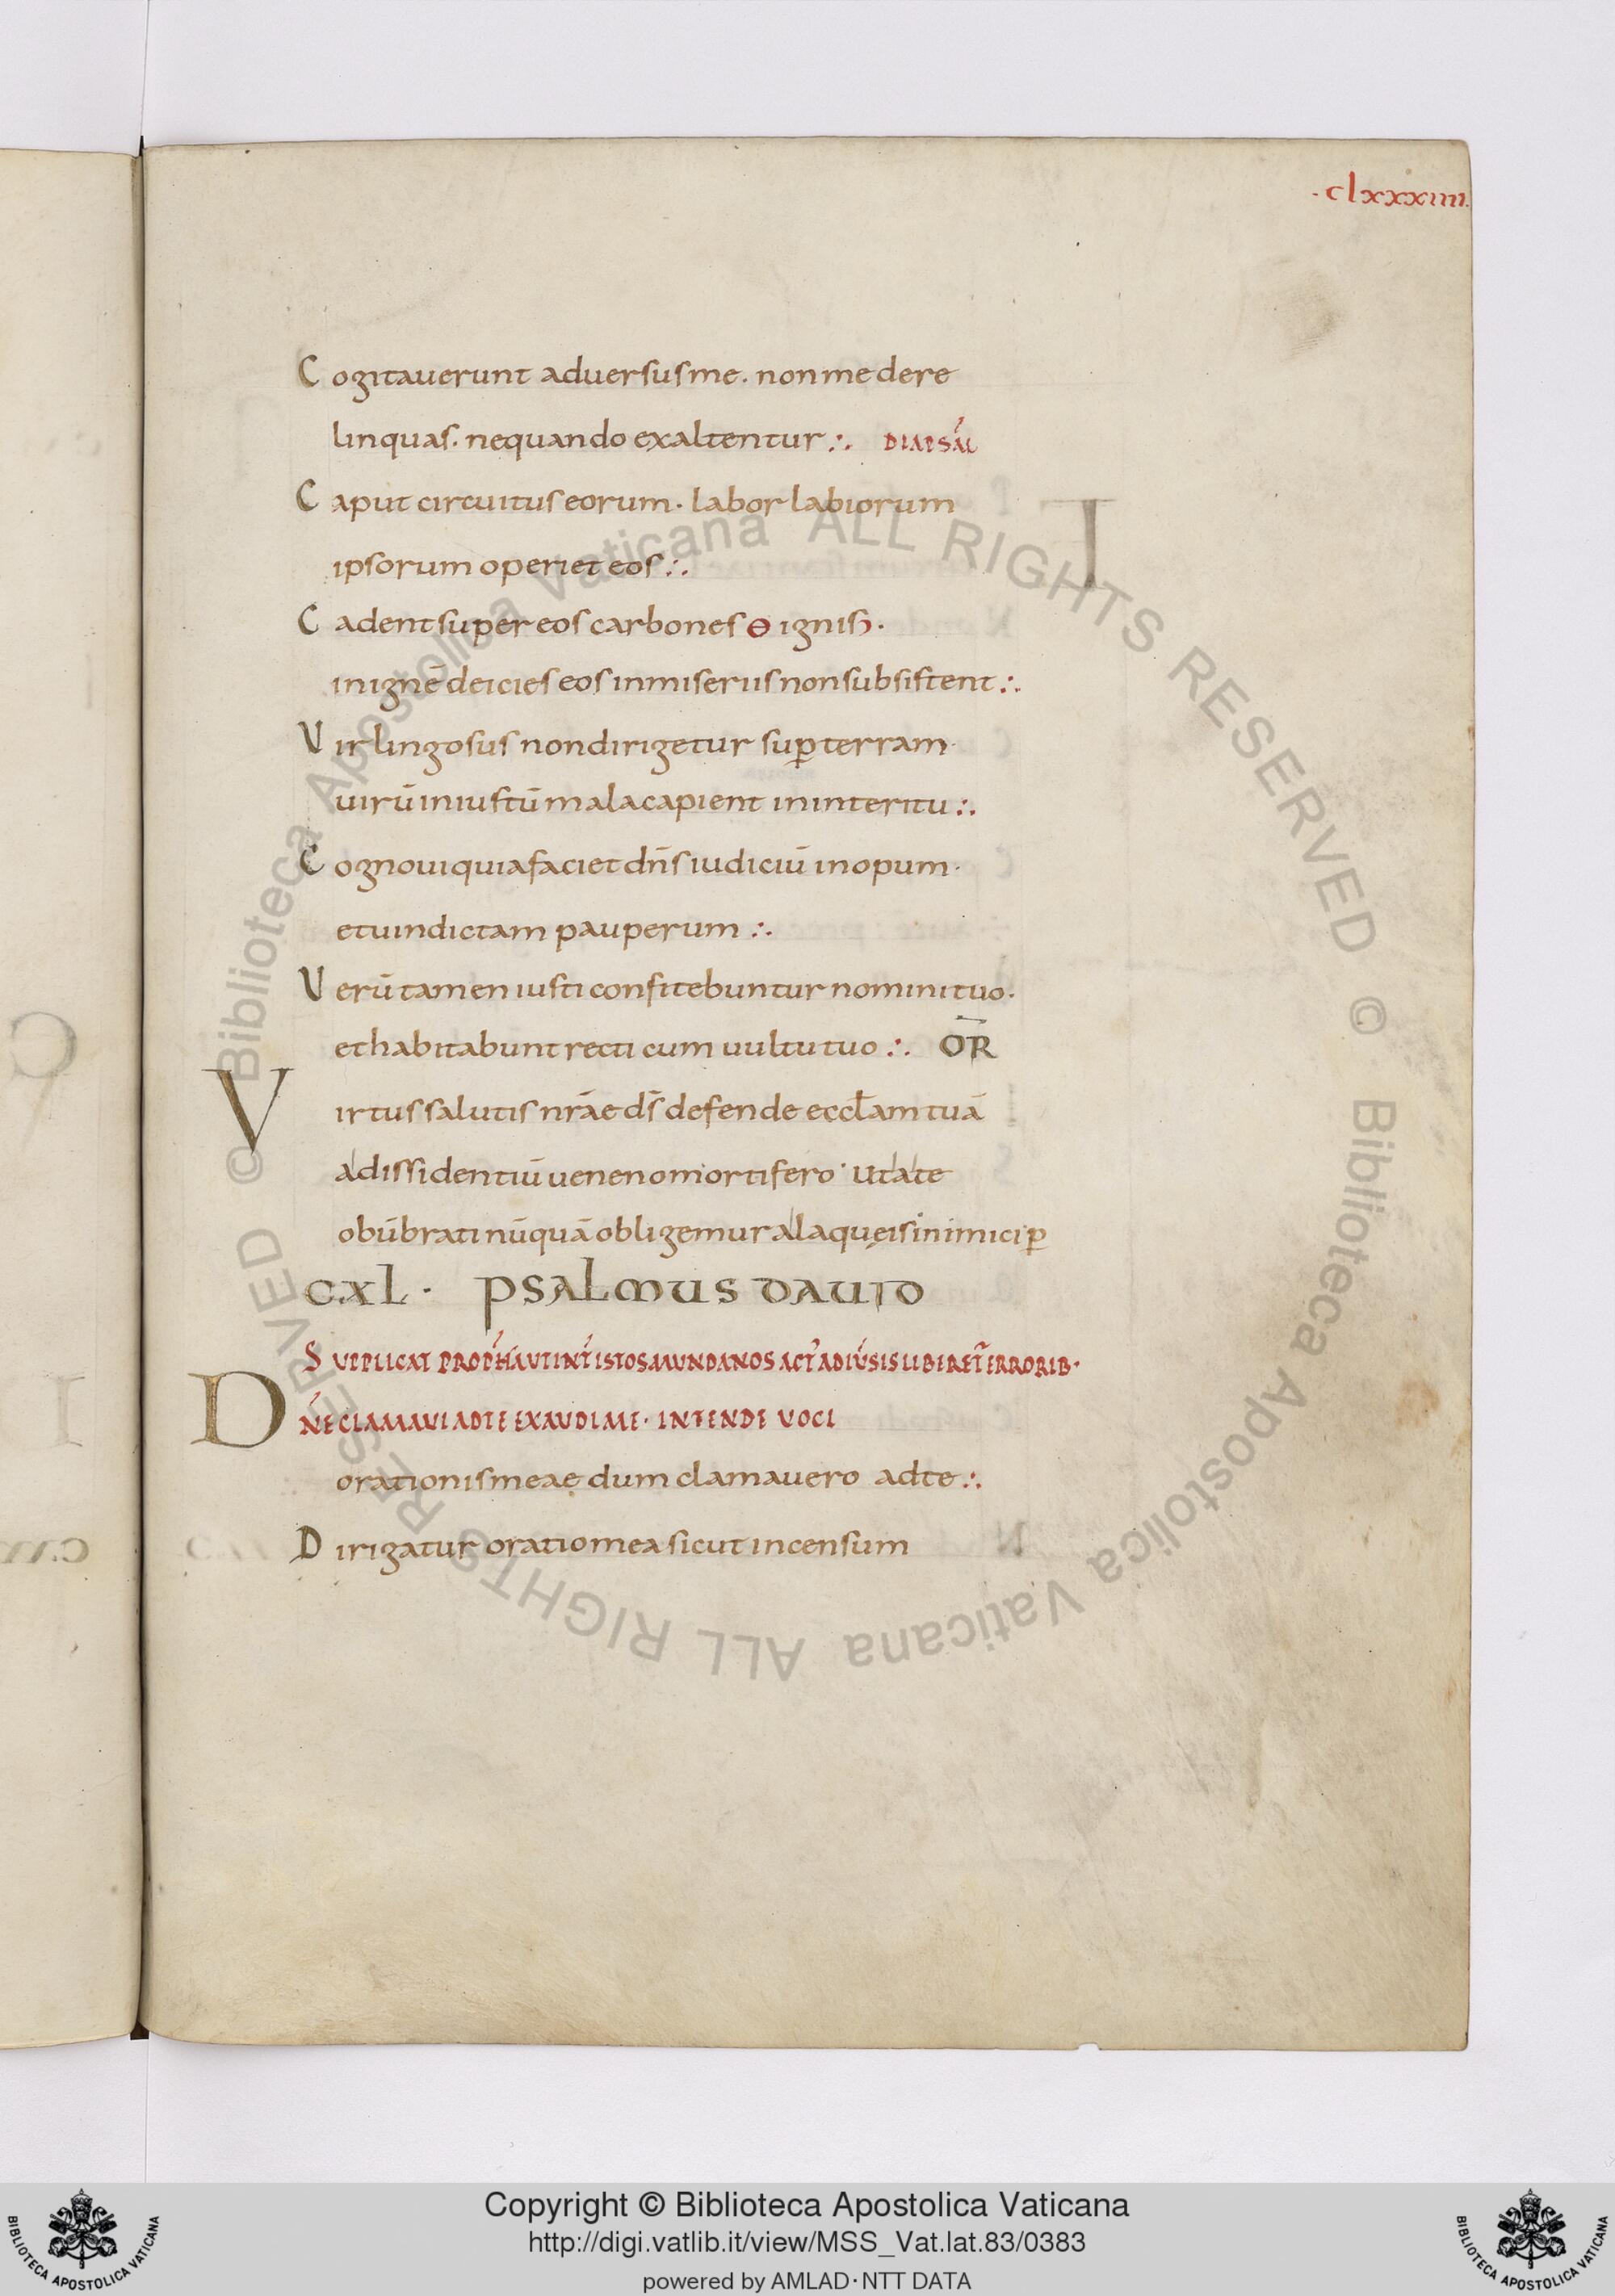 ·clxxxiiii·
Cogitauerunt aduersus me. non me dere
linquas. nequando exaltentur :. DIAPSAL
Caput circuitus eorum. labor labiorum
ipsorum operiet eos :.
Cadent super eos carbones ϴ ignis.
in ignē deicies eos in miseriis non subsistent :.
Vir lingosus non dirigetur suꝑ terram.
uirū iniustū mala capient in interitu :.
Cognoui quia faciet dn̄s iudiciū inopum.
et uindictam pauperum :.
Verūtamen iusti confitebuntur nomini tuo.
et habitabunt recti cum uultu tuo :. OR̄
Virtus salutis nrāe ds̄ defende eccl̄am tuā
a dissidentiū ueneno mortifero· Ut a te
obūbrati nūquā obligemur a laqueis inimici ꝑ
CXL· PSALMUS DAUID
SUPPLICAT PROPHA UT INT ISTOS MUNDANOS ACT ADIUSIS LIBIRET ERRORIB·
DNE CLAMAUI AD TE EXAUDI ME· INTENDE UOCI
orationis meae dum clamauero ad te :.
Dirigatur oratio mea sicut incensum
© Biblioteca Apostolica Vaticana ALL RIGHTS RESERVED © Biblioteca Apostolica Vaticana ALL RIGHTS RESERVED
Copyright © Biblioteca Apostolica Vaticana
http://digi.vatlib.it/view/MSS_Vat.lat.83/0383
powered by AMLAD·NTT DATA
BIBLIOTECA APOSTOLICA VATICANA
BIBLIOTECA APOSTOLICA VATICANA